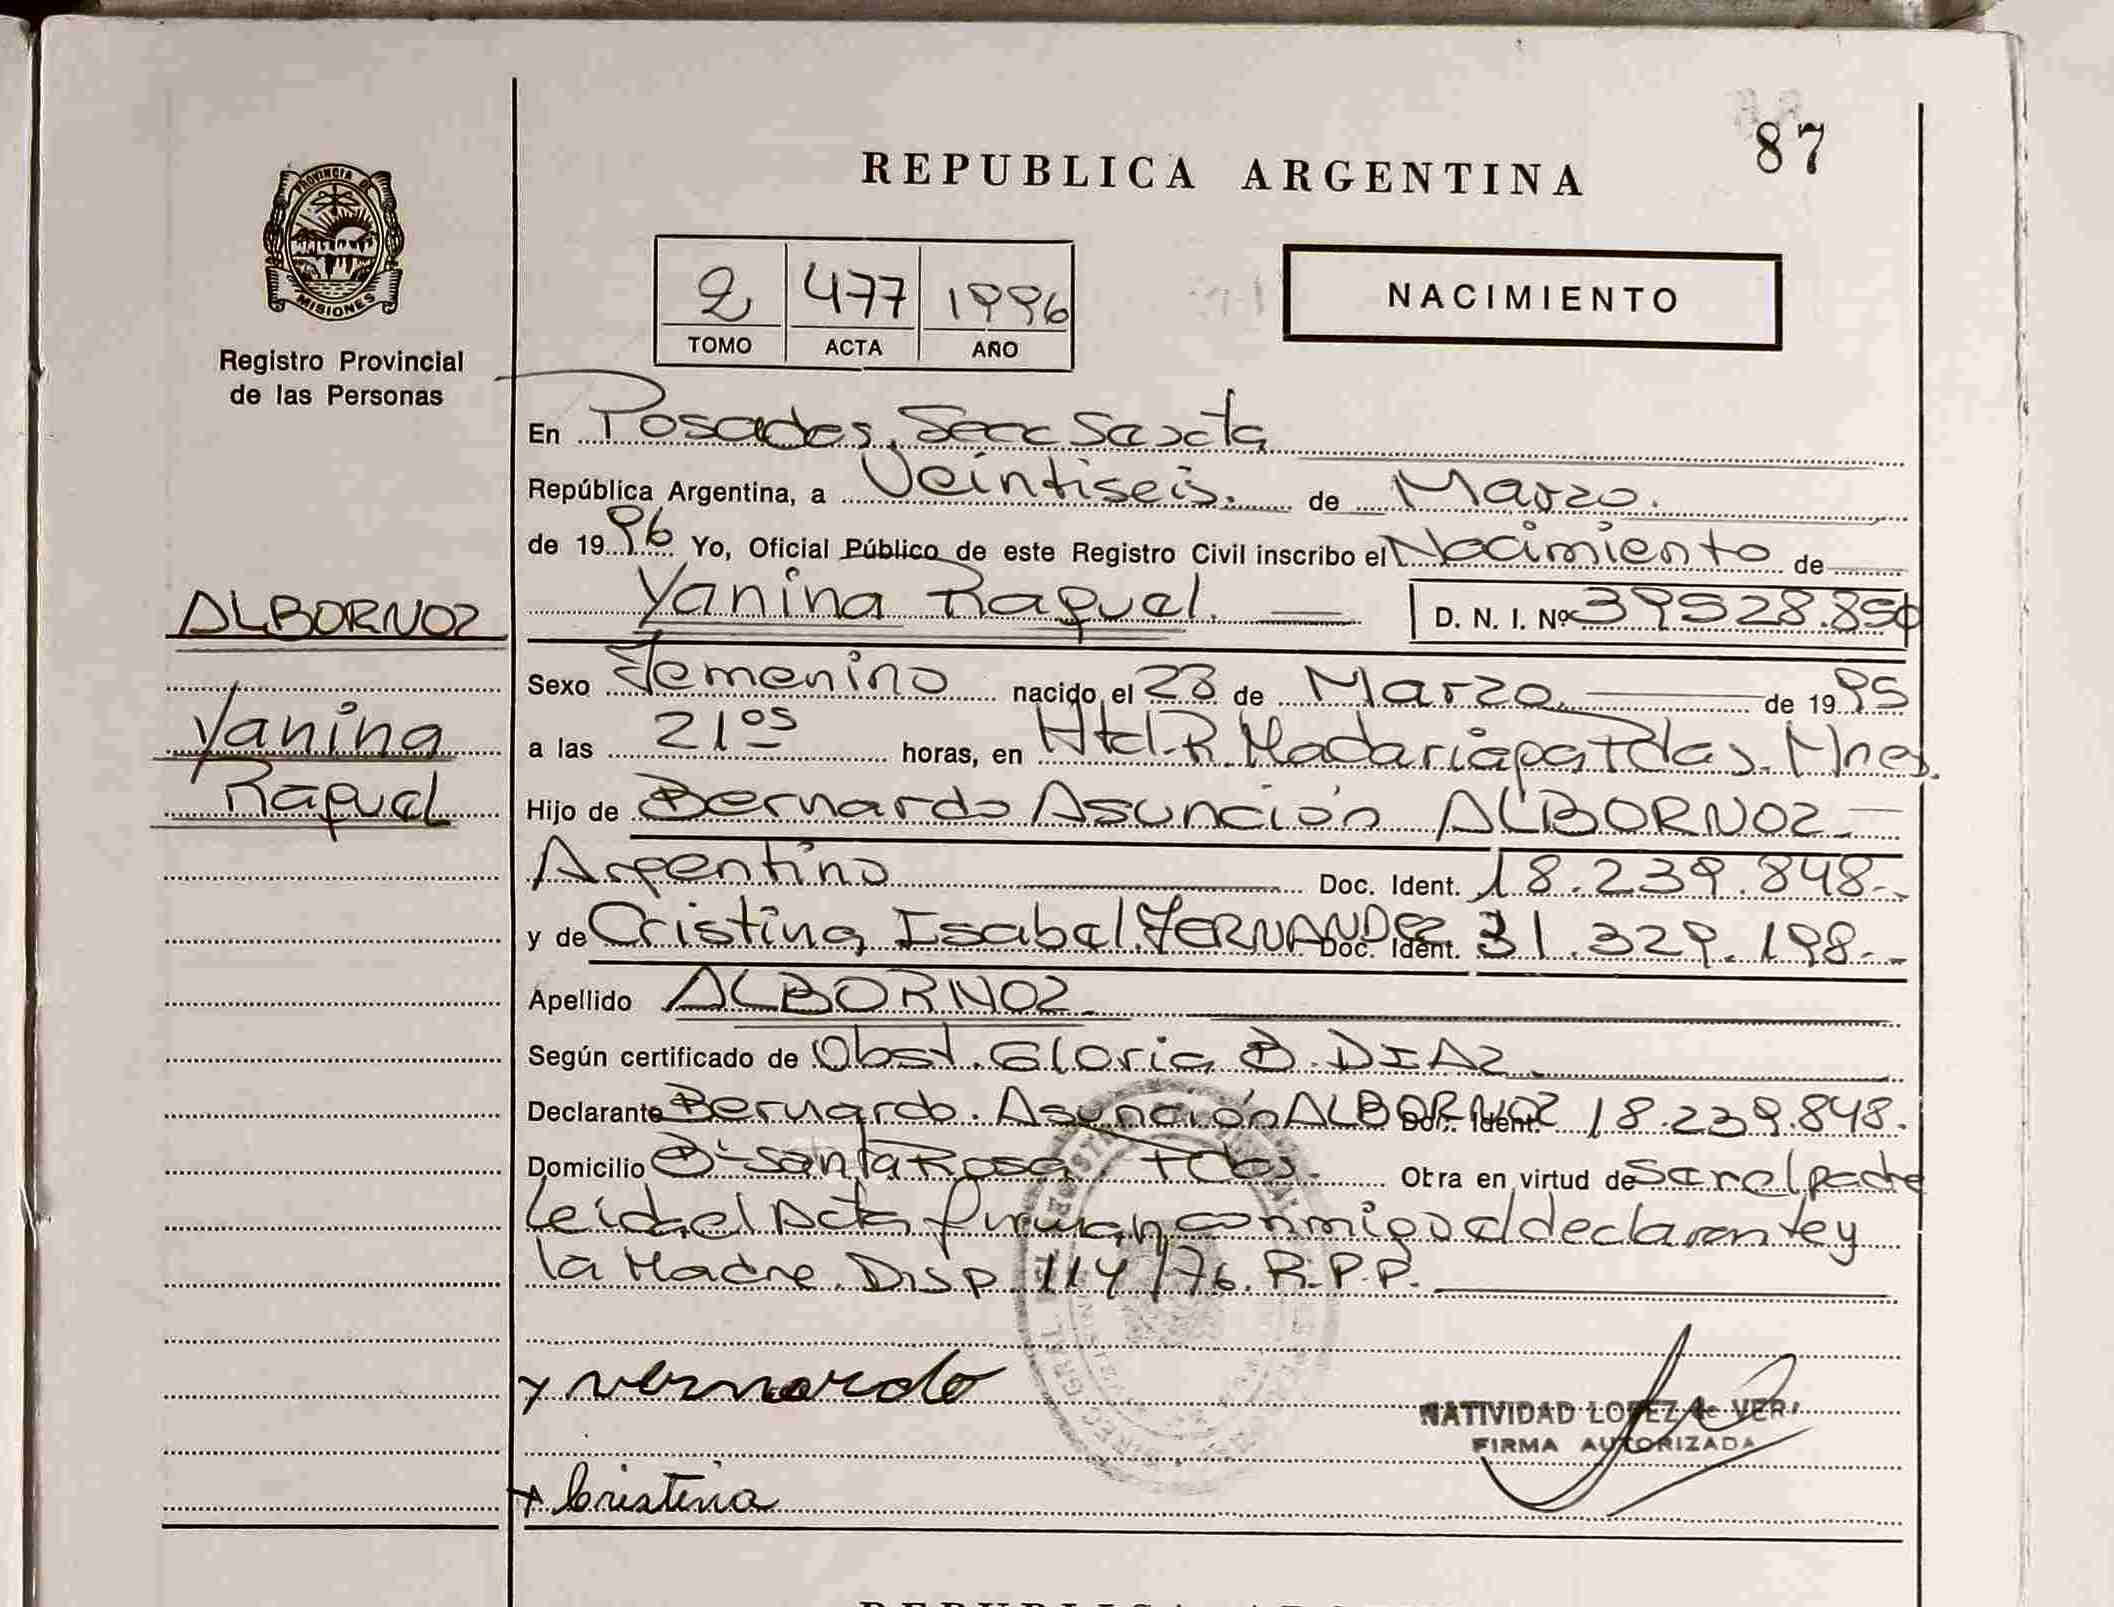 87
REPUBLICA ARGENTINA
PROVINCIA DE
MISIONES
Registro Provincial
de las Personas
2 477 1996
TOMO ACTA AÑO
NACIMIENTO
En Posadas, Secc Sexta
República Argentina, a Veintiseis. de Marzo.
de 1996 Yo, Oficial Público de este Registro Civil inscribo el Nacimiento de
Yanina Raquel. D. N. I. Nº 39528.850
ALBORNOZ
Yanina
Raquel
Sexo Femenino nacido el 23 de Marzo de 1995
a las 21 05 horas, en Htal. R. Madariaga Pdas. Mnes.
Hijo de Bernardo Asunción ALBORNOZ
Argentino Doc. Ident. 18.239.848.-
y de Cristina Isabel FERNANDEZ Doc. Ident. 31.329.198.-
Apellido ALBORNOZ
Según certificado de Obst. Gloria B. DIAZ
Declarante Bernardo Asunción ALBORNOZ Doc. Ident. 18.239.848.
Domicilio Bº Santa Rosa Pdas. Otra en virtud de ser el padre
leida el Acta firman conmigo el declarante y
la Madre Disp 114/76. R.P.P.
y vernardo
NATIVIDAD LOPEZ de VER
FIRMA AUTORIZADA
+ Cristina